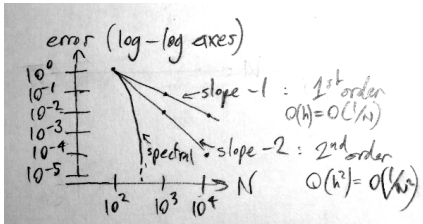 error (log-log axes)
10⁰
10⁻¹
10⁻²
10⁻³
10⁻⁴
10⁻⁵
10² 10³ 10⁴ N
spectral
slope -1 : 1st order
O(h) = O(1/N)
slope -2 : 2nd order
O(h²) = O(1/N²)